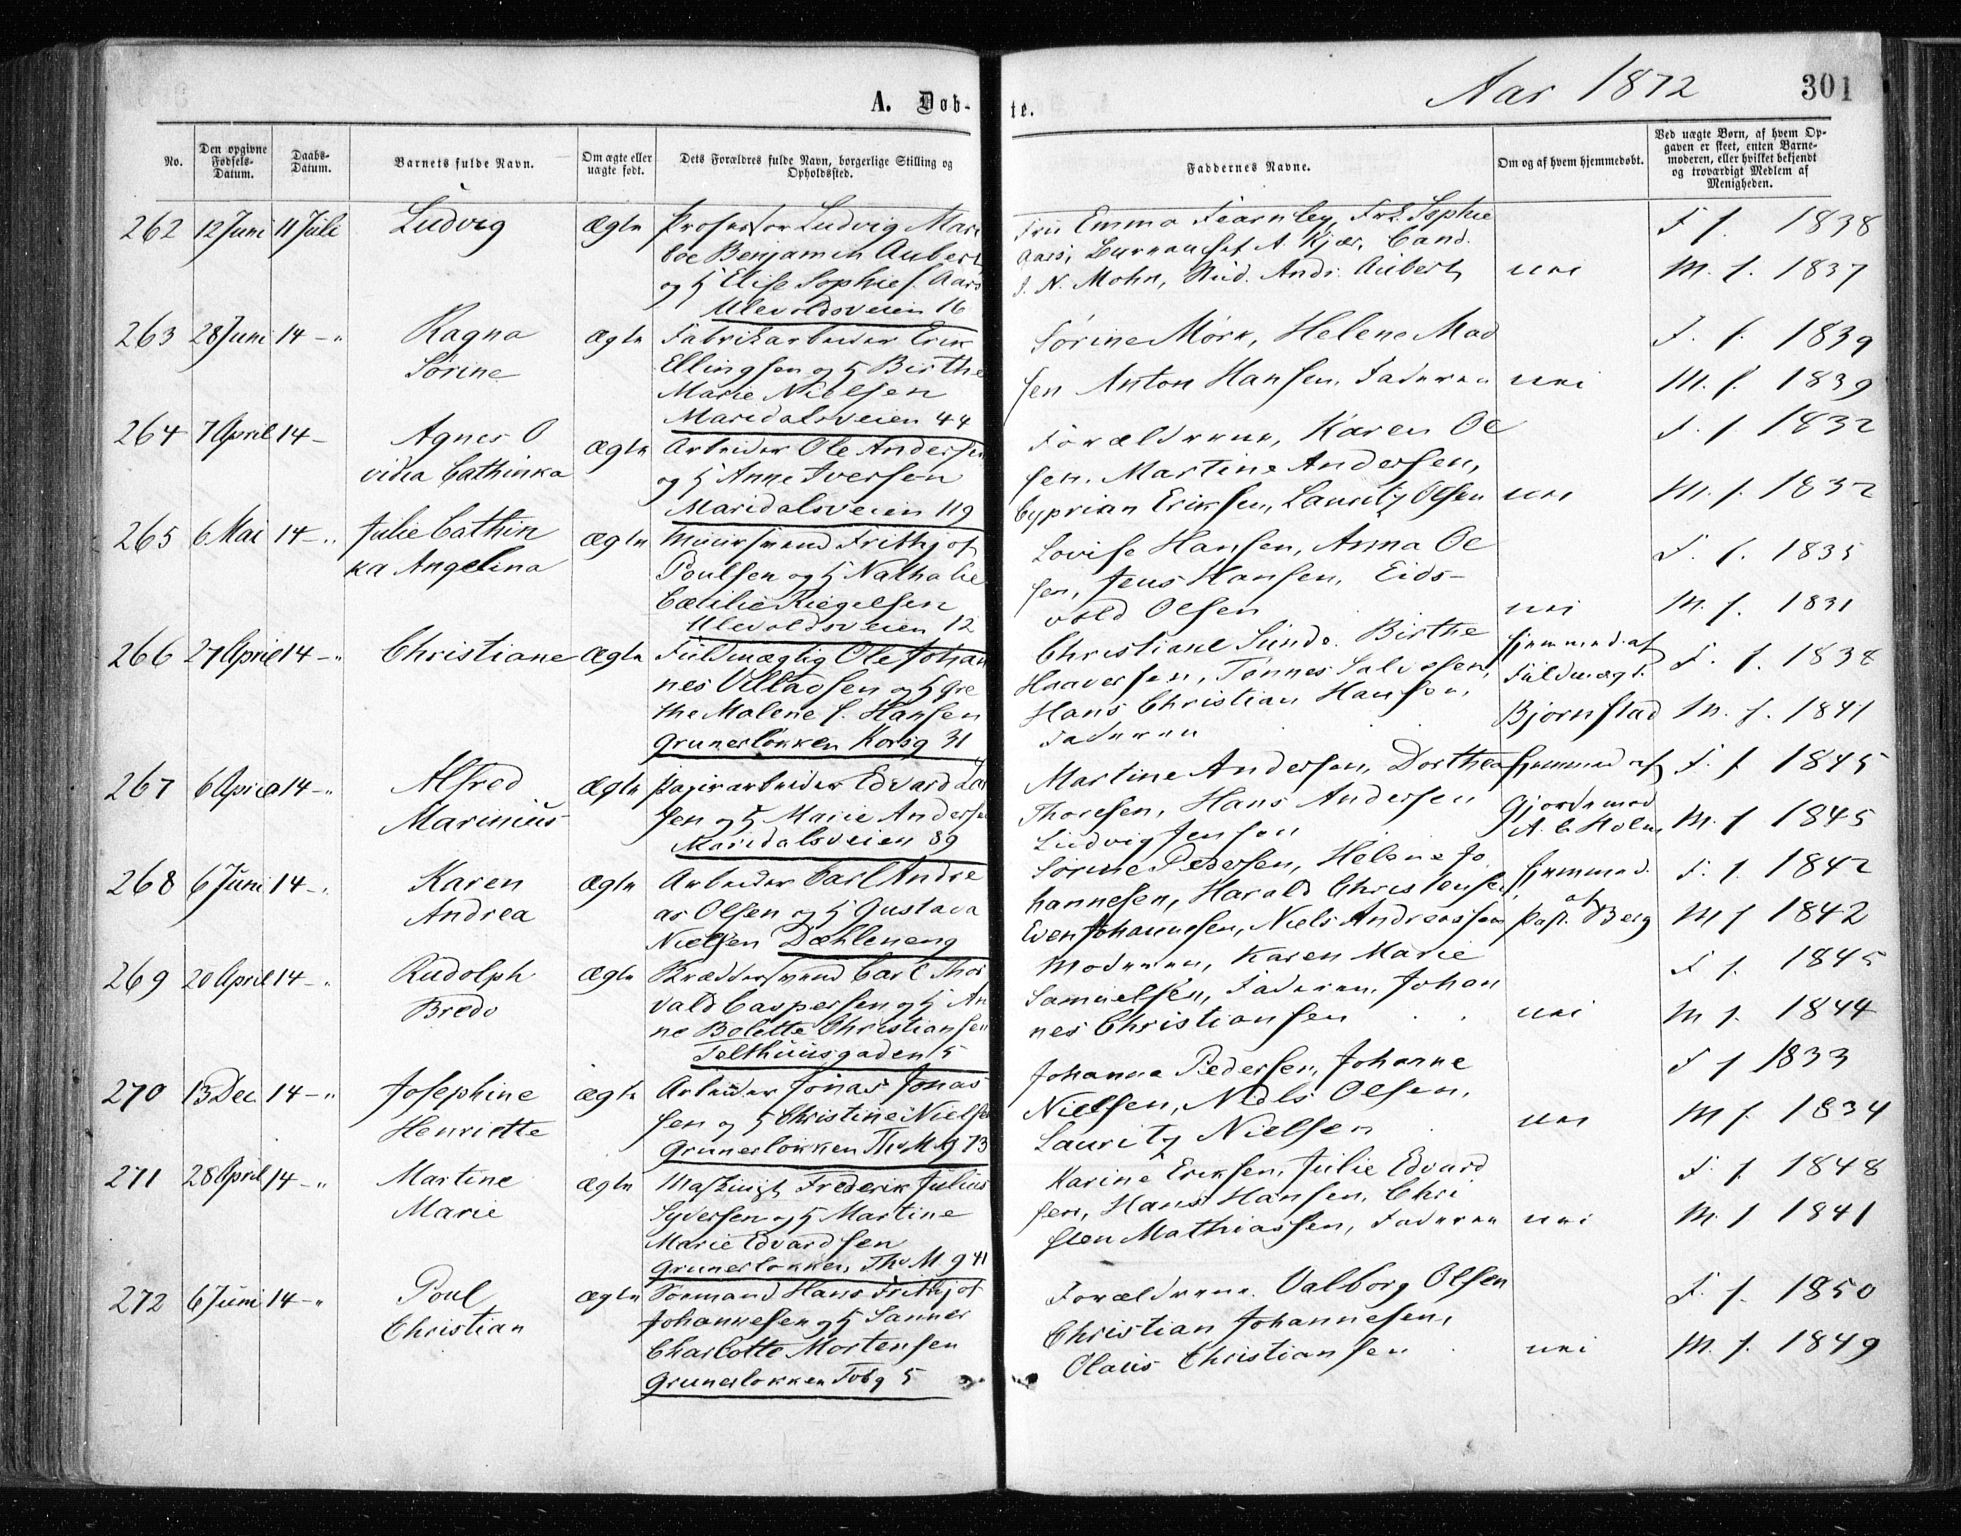 Aar 1872
301
A. Døb-
te.
No.
Den opgivne Fødsels-Datum.
Daabs-Datum.
Barnets fulde Navn.
Om ægte eller uægte født.
Dets Forældres fulde Navn, borgerlige Stilling og Opholdssted.
Faddernes Navne.
Om og af hvem hjemmedøbt.
Ved uægte Børn, af hvem Opgaven er skeet, enten Barnemoderen, eller hvilket bekjendt og troværdigt Medlem af Menigheden.
262 12 Juni 11 Juli Ludvig ægte Professor Ludvig Mari
boe Benjamin Aubert
og H Elise Sophie f. Aars
Ulevoldsveien 16
Fru Emma Fearnley, Frk. Sophie
Aars, A. Kjær, Cand.
J. N. Mohn, Stud. Andr. Aubert
nei
F. f. 1838
M. f. 1837
263 28 Juni 14 - " Ragna
Sørine
ægte
Fabrikarbeider Erik
Ellingsen og H Birthe
Marie Nielsen
Maridalsveien 44
Sørine Mørk, Helene Mad
sen Anton Hansen, Faderen
nei
F. f. 1839
M. f. 1839
264 7 April 14 - Agnes O
vidia Cathinka
ægte
Arbeider Ole Andersen
og H Anne Iversen
Maridalsveien 119
Forældrene, Karen Ol
sen, Martine Andersen,
Cyprian Eriksen, Lauritz Olsen
nei
F. f. 1832
M. f. 1832
265 6 Mai 14 - " Julie Cathin
ka Angelina
ægte
Muursvend Frithjof
Poulsen og H Nathalie
Cæcilie Riegelsen
Ulevoldsveien 12
Lovise Hansen, Anna Ol
sen, Jens Hansen, Eids-
vold Olsen
nei
F. f. 1835
M. f. 1831
266 27 April 14 - " Christiane ægte
Fuldmægtig Ole Johan
nes Villadsen og H Gre
the Malene f. Hansen
Grunerløkken Korsg 31
Christiane Sundo. Birthe
Haaversen, Tønnes Salvesen,
Hans Christian Hansen,
Faderen
Hjemmed. af
Fuldmægt.
Bjørnstad
F. f. 1838
M. f. 1841
267 6 April 14 - " Alfred
Marinius
ægte
Papirarbeider Edvard Lar
sen og H Marie Anderse
Maridalsveien 89
Martine Andersen, Dorthea
Thoresen, Hans Andersen
Ludvig Jensen
Hjemmed af
Gjordemod
A. C. Holm
F. f. 1845
M. f. 1845
268 6 Juni 14 - " Karen
Andrea
ægte
Arbeider Carl Andre
as Olsen og H Gustava
Nielsen Dæhleneng
Sørine Pedersen, Helene Jo
hannesen, Harald Christensen,
Even Johannesen, Niels Andreassen
Hjemmed.
af
Past. Berg
F. f. 1842
M f. 1842
269 20 April 14 - " Rudolph
Bredo
ægte
Bræddersvend Carl Thor
vald Caspersen og H An
ne Bolette Christiansen
Telthuusgaden 5
Moderen, Karen Marie
Samuelsen, Faderen, Johan
nes Christiansen
nei
F f. 1845
M f. 1844
270 13 Dec 14 - " Josephine
Henriette
ægte
Arbeider Jonas Jonas
sen og H Christine Nielse
Grunerløkken Th. M. g 73
Johanna Pedersen, Johanne
Nielsen, Niels Olsen,
Lauritz Nielsen
nei
F f 1833
M f. 1834
271 28 April 14 - " Martine
Marie
ægte
Frederik Julius
Syversen og H Martine
Marie Edvardsen
Grunerløkken, Th. M. g 41
Karine Eriksen, Julie Edvard
sen, Hans Hansen, Chri
sten Mathiassen, Faderen
nei
F. f. 1848
M. f 1841
272 6 Juni 14 - " Poul
Christian
ægte
Tømmand Hans Frithjof
Johannesen og H Sanner
Charlotte Mortensen
Grunerløkken Tobg 5
Forældrene. Valborg Olsen
Christian Johannesen,
Olaus Christiansen
nei
F. f. 1850
M. f. 1849